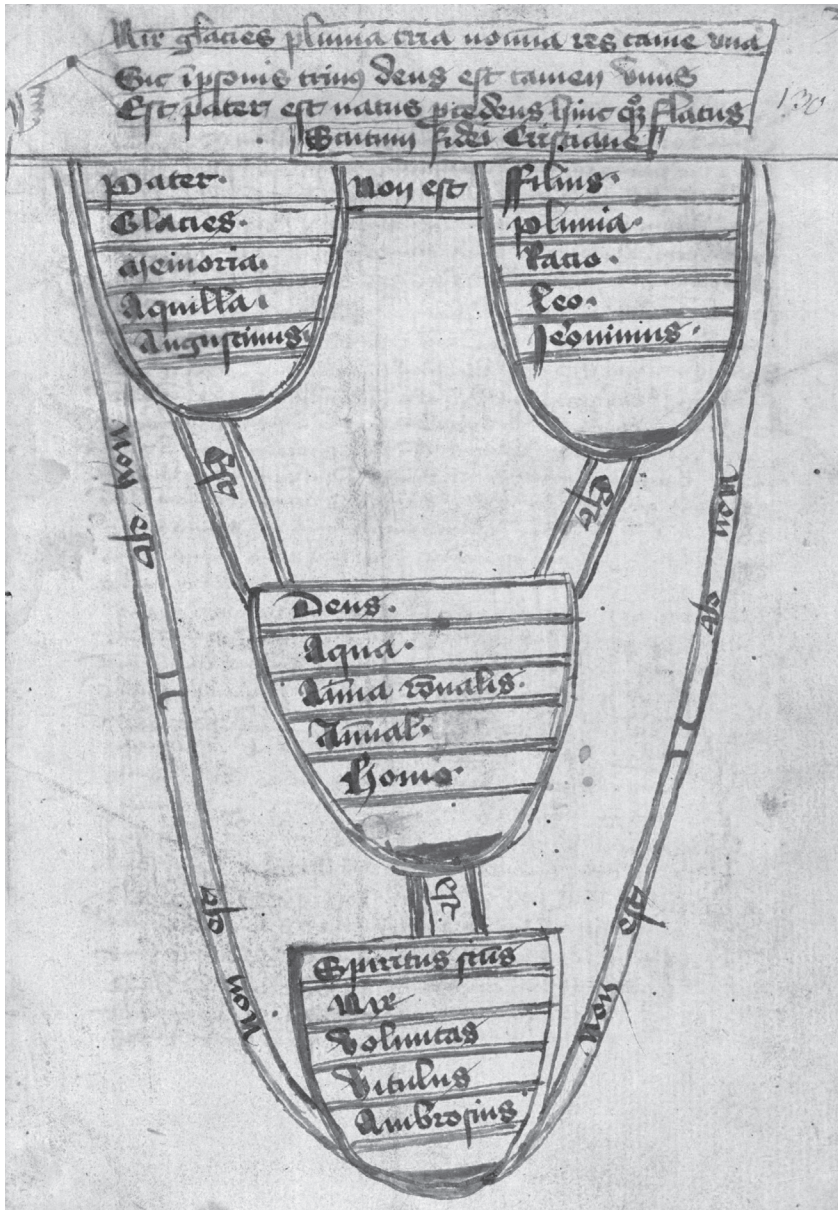 Nix glacies pluuia tria nomina res tamē vna
Sic ī psonis trinꝰ deus est tamen vnus
Est pater est natus pcedens hinc qꝫ flatus
130
Scutum fidei Cristiane
Pater·
Glacies·
Memoria·
Aquilla·
Augustinus·
Non est
Filius·
pluuia·
Racio·
Leo·
Jeronimus·
Non est
est
est
Non est
Deus·
Aqua·
Aīa rōnalis·
Aīmal·
homo·
est
est
Non
est
Non
Spiritus scūs
Nix
Voluntas
Vitulus
Ambrosius